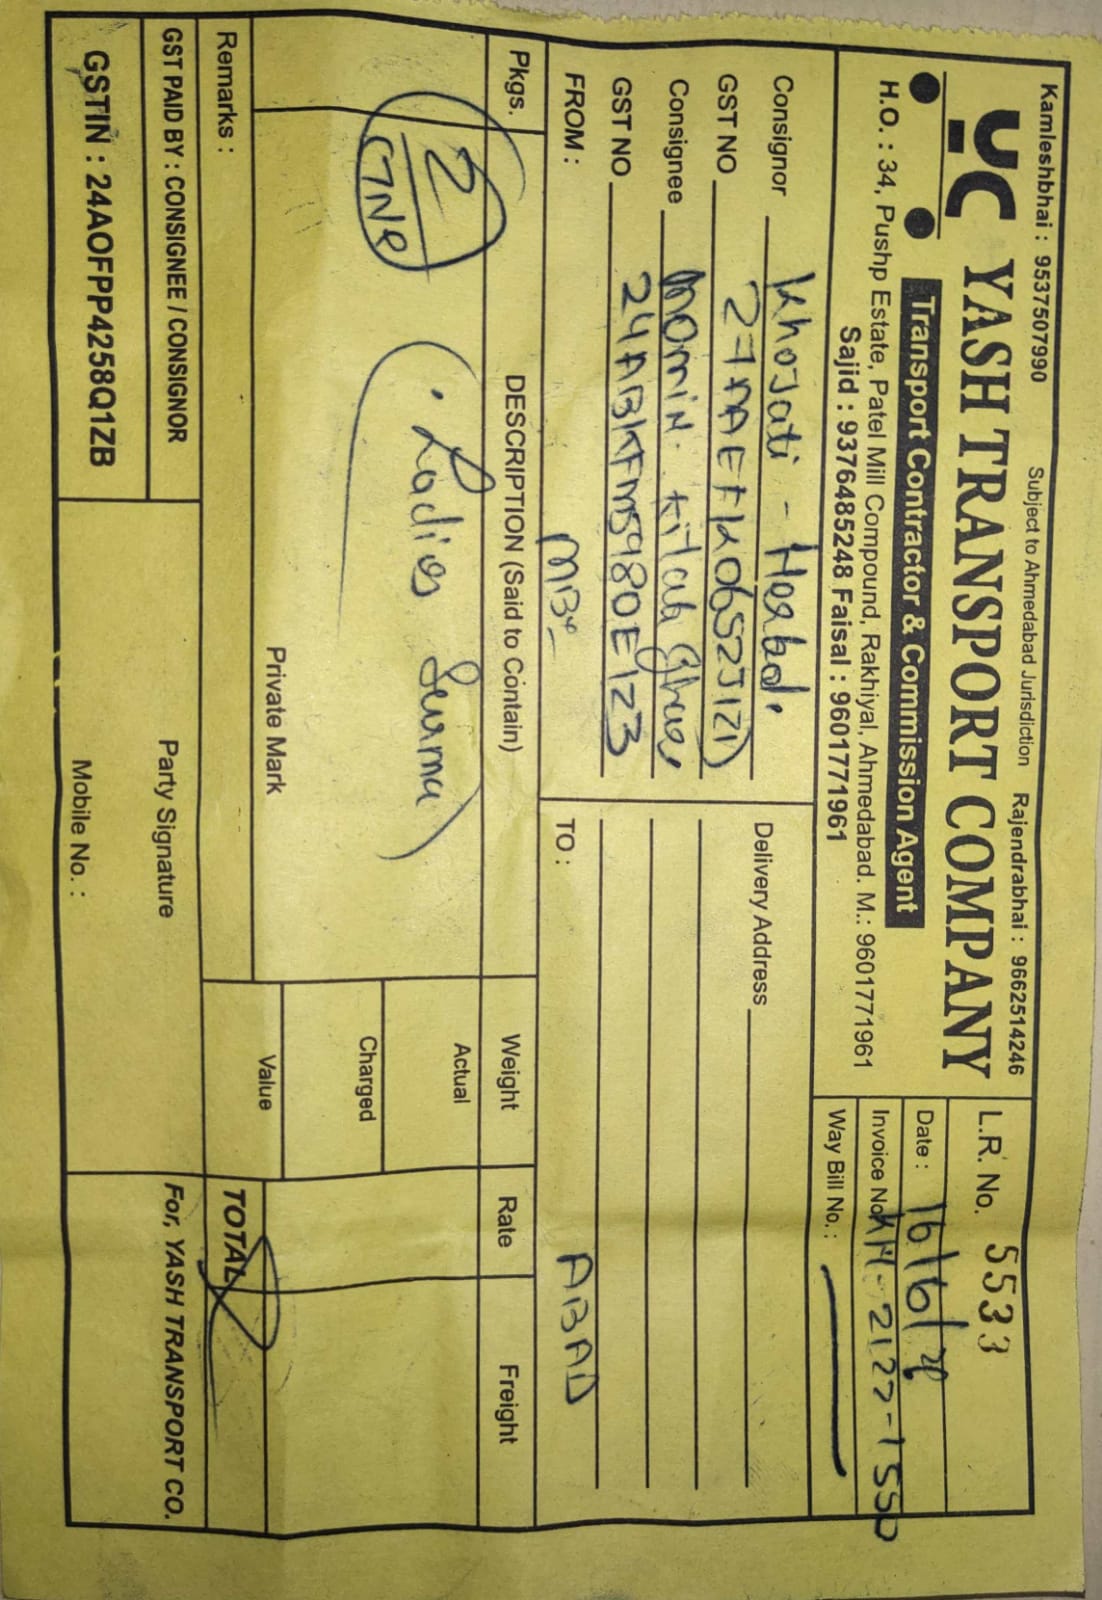 Kamleshbhai : 9537507990 Subject to Ahmedabad Jurisdiction Rajendrabhai : 9662514246
YC YASH TRANSPORT COMPANY
Transport Contractor & Commission Agent
H.O. : 34, Pushp Estate, Patel Mill Compound, Rakhiyal, Ahmedabad. M.: 9601771961
Sajid : 9376485248 Faisal : 9601771961
L.R. No. 5533
Date : 16/6/
Invoice No. KH-2122-1550
Way Bill No. :
Consignor Khojati - Herbal
GST NO
Consignee Momin. Kitab Ghar
GST NO 24ABKFM5980E1Z3
FROM :
Delivery Address
TO : ABAD
Pkgs. DESCRIPTION (Said to Contain) Weight Rate Freight
2
Ladies Surma
Actual
Charged
Private Mark
Value
Remarks :
TOTAL
GST PAID BY : CONSIGNEE / CONSIGNOR
GSTIN : 24AOFPP4258Q1ZB
Party Signature
Mobile No. :
For, YASH TRANSPORT CO.